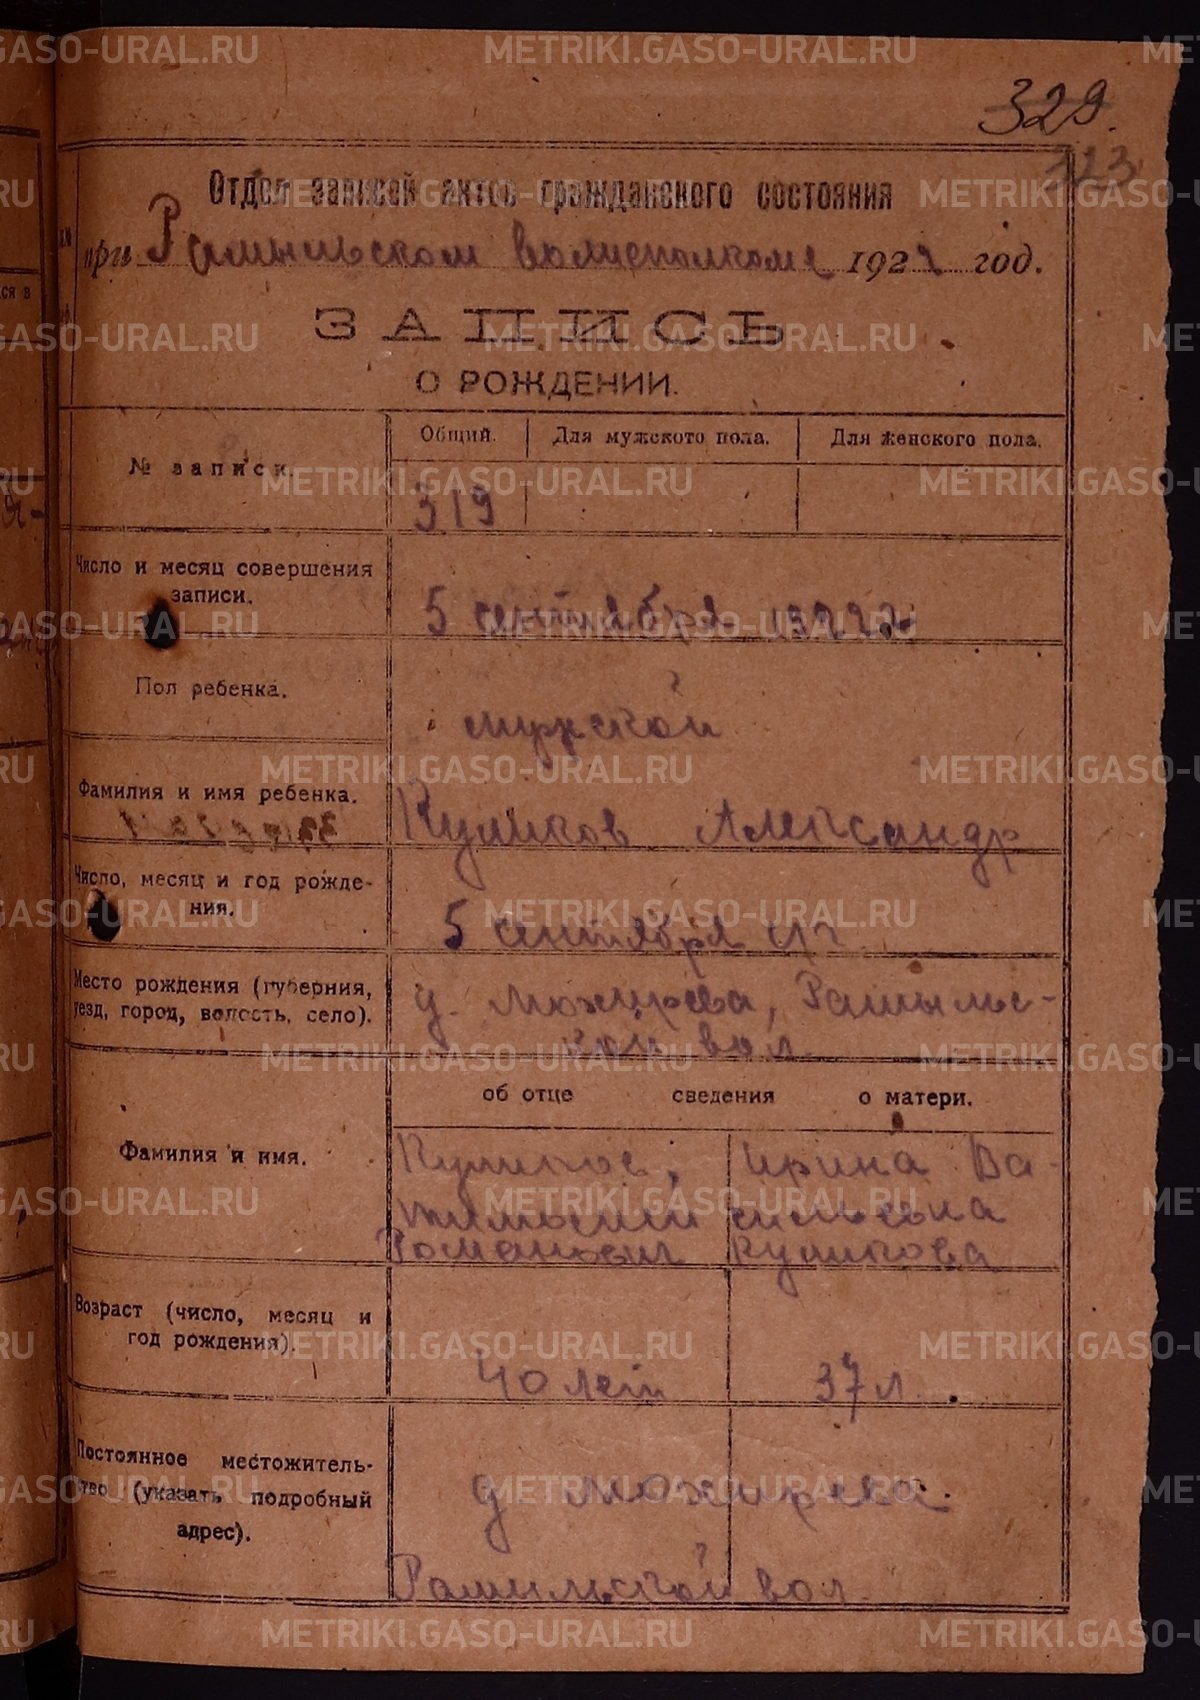 329.
323
Отдел записей актов гражданского состояния
при Рамыльском волисполкоме 1922 год.
ЗАПИСЬ
О РОЖДЕНИИ.
№ записи.
Общий.
Для мужского пола.
Для женского пола.
319
Число и месяц совершения
записи.
5 сентября 1922 г
Пол ребенка.
мужской
Фамилия и имя ребенка.
Куликов Александр
Число, месяц и год рожде-
ния.
5 сентября
Место рождения (губерния,
уезд, город, волость, село).
д. Мохирева, Рамыльс-
кой вол.
об отце сведения о матери.
Фамилия и имя.
Куликов,
Романович
Ирина Ва-
сильевна
Куликова
Возраст (число, месяц и
год рождения).
40 лет
37 л.
Постоянное местожитель-
ство (указать подробный
адрес).
д. Мохирева
Рамыльской вол.
METRIKI.GASO-URAL.RU